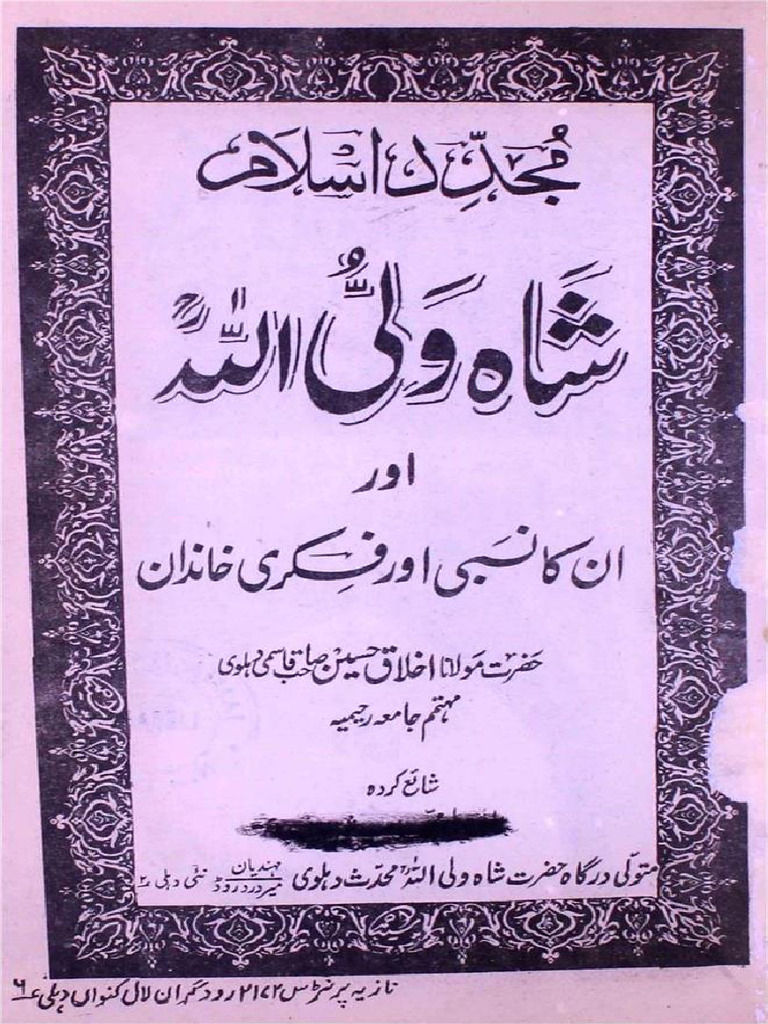 مُجَدِّدِ اسْلَام
شَاہ وَلیُّ اللہؒ
اور
ان کا نسبی اور فکری خاندان
حضرت مولانا اخلاق حسین صاحب قاسمی دہلوی
مہتمم جامعہ رحیمیہ
شائع کردہ
متولّی درگاہ حضرت شاہ ولی اللہؒ محدّث دہلوی مہندیان میردرد روڈ نئی دہلی ۲
نازیہ پرنٹرس ۲۱۷۲ رودگران لال کنواں دہلی ۶